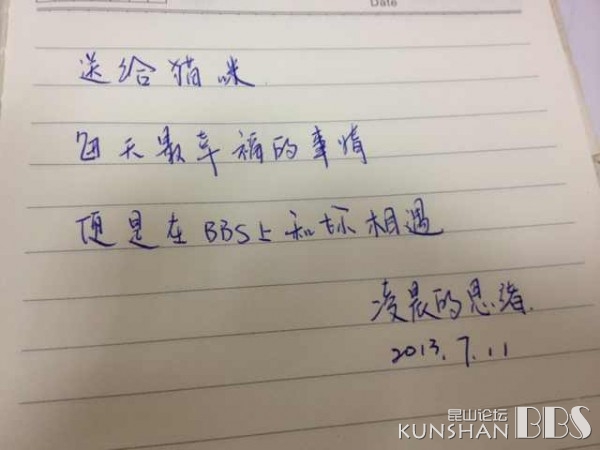 Date
送给猫咪.
每天最幸福的事情
便是在BBS上和你相遇
凌晨的思绪.
2013.7.11
昆山论坛
KUNSHAN BBS